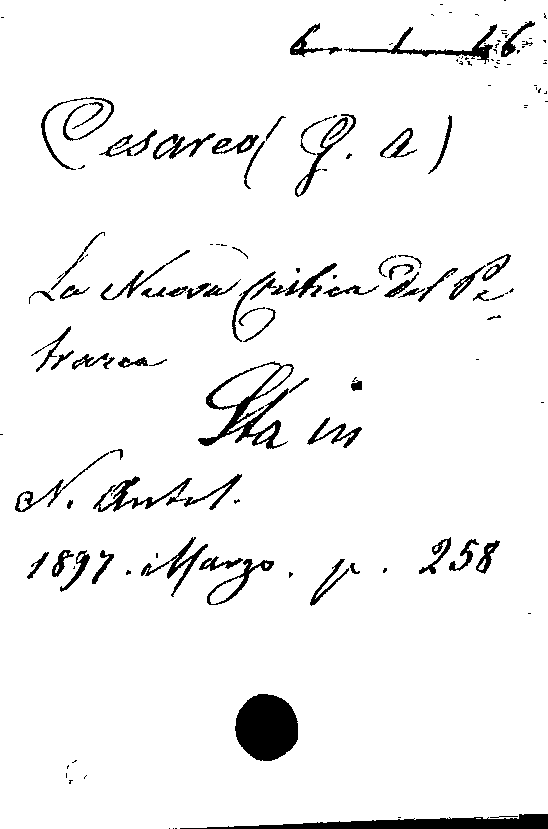 6. 1. 46
Cesareo (G. A)
La Nuova Critica del Pe-
trarca
Sta in
N. Antol.
1897. Marzo. p. 258